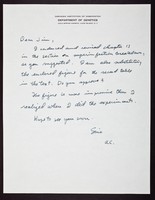 CARNEGIE INSTITUTION OF WASHINGTON
DEPARTMENT OF GENETICS
Dear Jim,
I endorsed and revised chapter 13
in the section on superinfection breakdown,
as you suggested. I am also substituting
the enclosed figure for the small table
in the text. Do you approve?
The figure is more impressive than I
realized when I did the experiments.
Hope to see you soon.